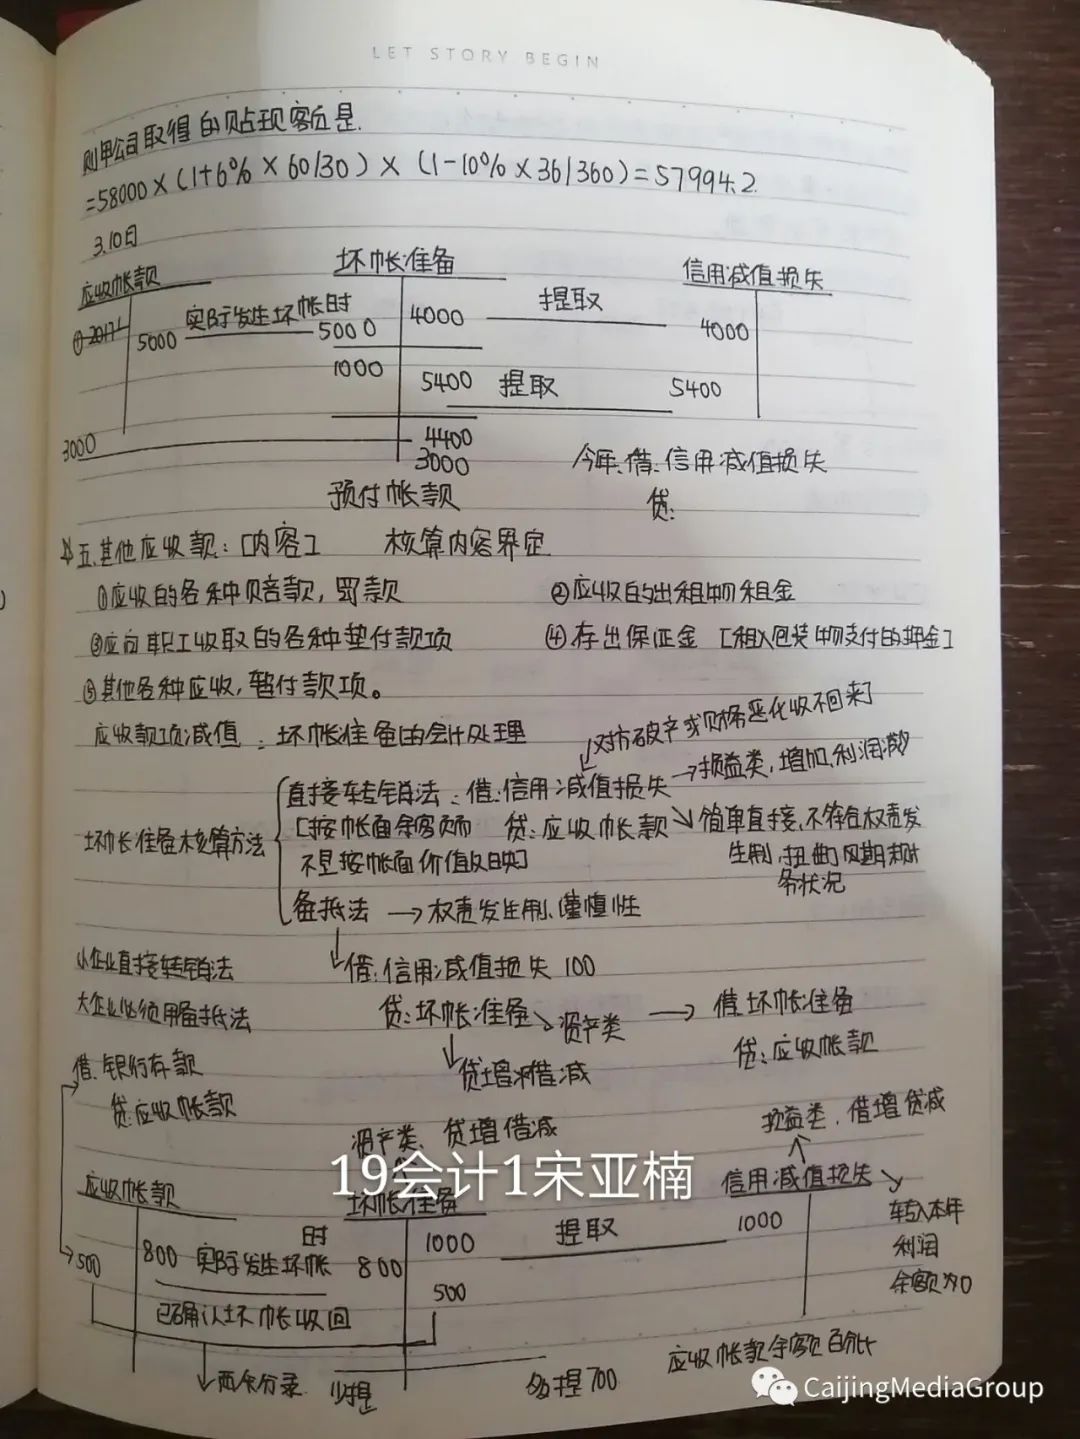 LET STORY BEGIN
则甲公司取得的贴现额是.
=58000×(1+6%×60/30)×(1-10%×36/360)=57994.2
3.10日
应收帐款 坏帐准备 信用减值损失
① 2017
5000 实际发生坏帐时 5000 4000 提取 4000
1000 5400 提取 5400
3000 4400
3000 今年:借:信用减值损失
预付帐款 贷:
五.其他应收款:[内容] 核算内容界定
①应收的各种赔款,罚款 ②应收的出租物租金
③应向职工收取的各种垫付款项 ④存出保证金 [租入包装物支付的押金]
⑤其他各种应收,暂付款项。
应收款项减值:坏帐准备的会计处理 对方破产或财务恶化收不回来]
直接转销法:借:信用减值损失→损益类,增加,利润减少
坏帐准备核算方法 [按帐面余额而 贷:应收帐款 简单直接,不符合权责发
不是按帐面价值反映] 生制,扭曲了期末财
务状况
备抵法→权责发生制、谨慎性
小企业直接转销法 借:信用减值损失 100
大企业必须用备抵法 贷:坏帐准备 资产类→借:坏帐准备
贷:应收帐款
借:银行存款 贷增借减
贷:应收帐款
资产类、贷增借减 损益类,借增贷减
19会计1宋亚楠
应收帐款 坏帐准备 信用减值损失
500 800 实际发生坏帐时 800 1000 提取 1000 转入本年
利润
500 余额为0
已确认坏帐收回
两条分录 少提 多提700 应收帐款余额百分比
CaijingMediaGroup